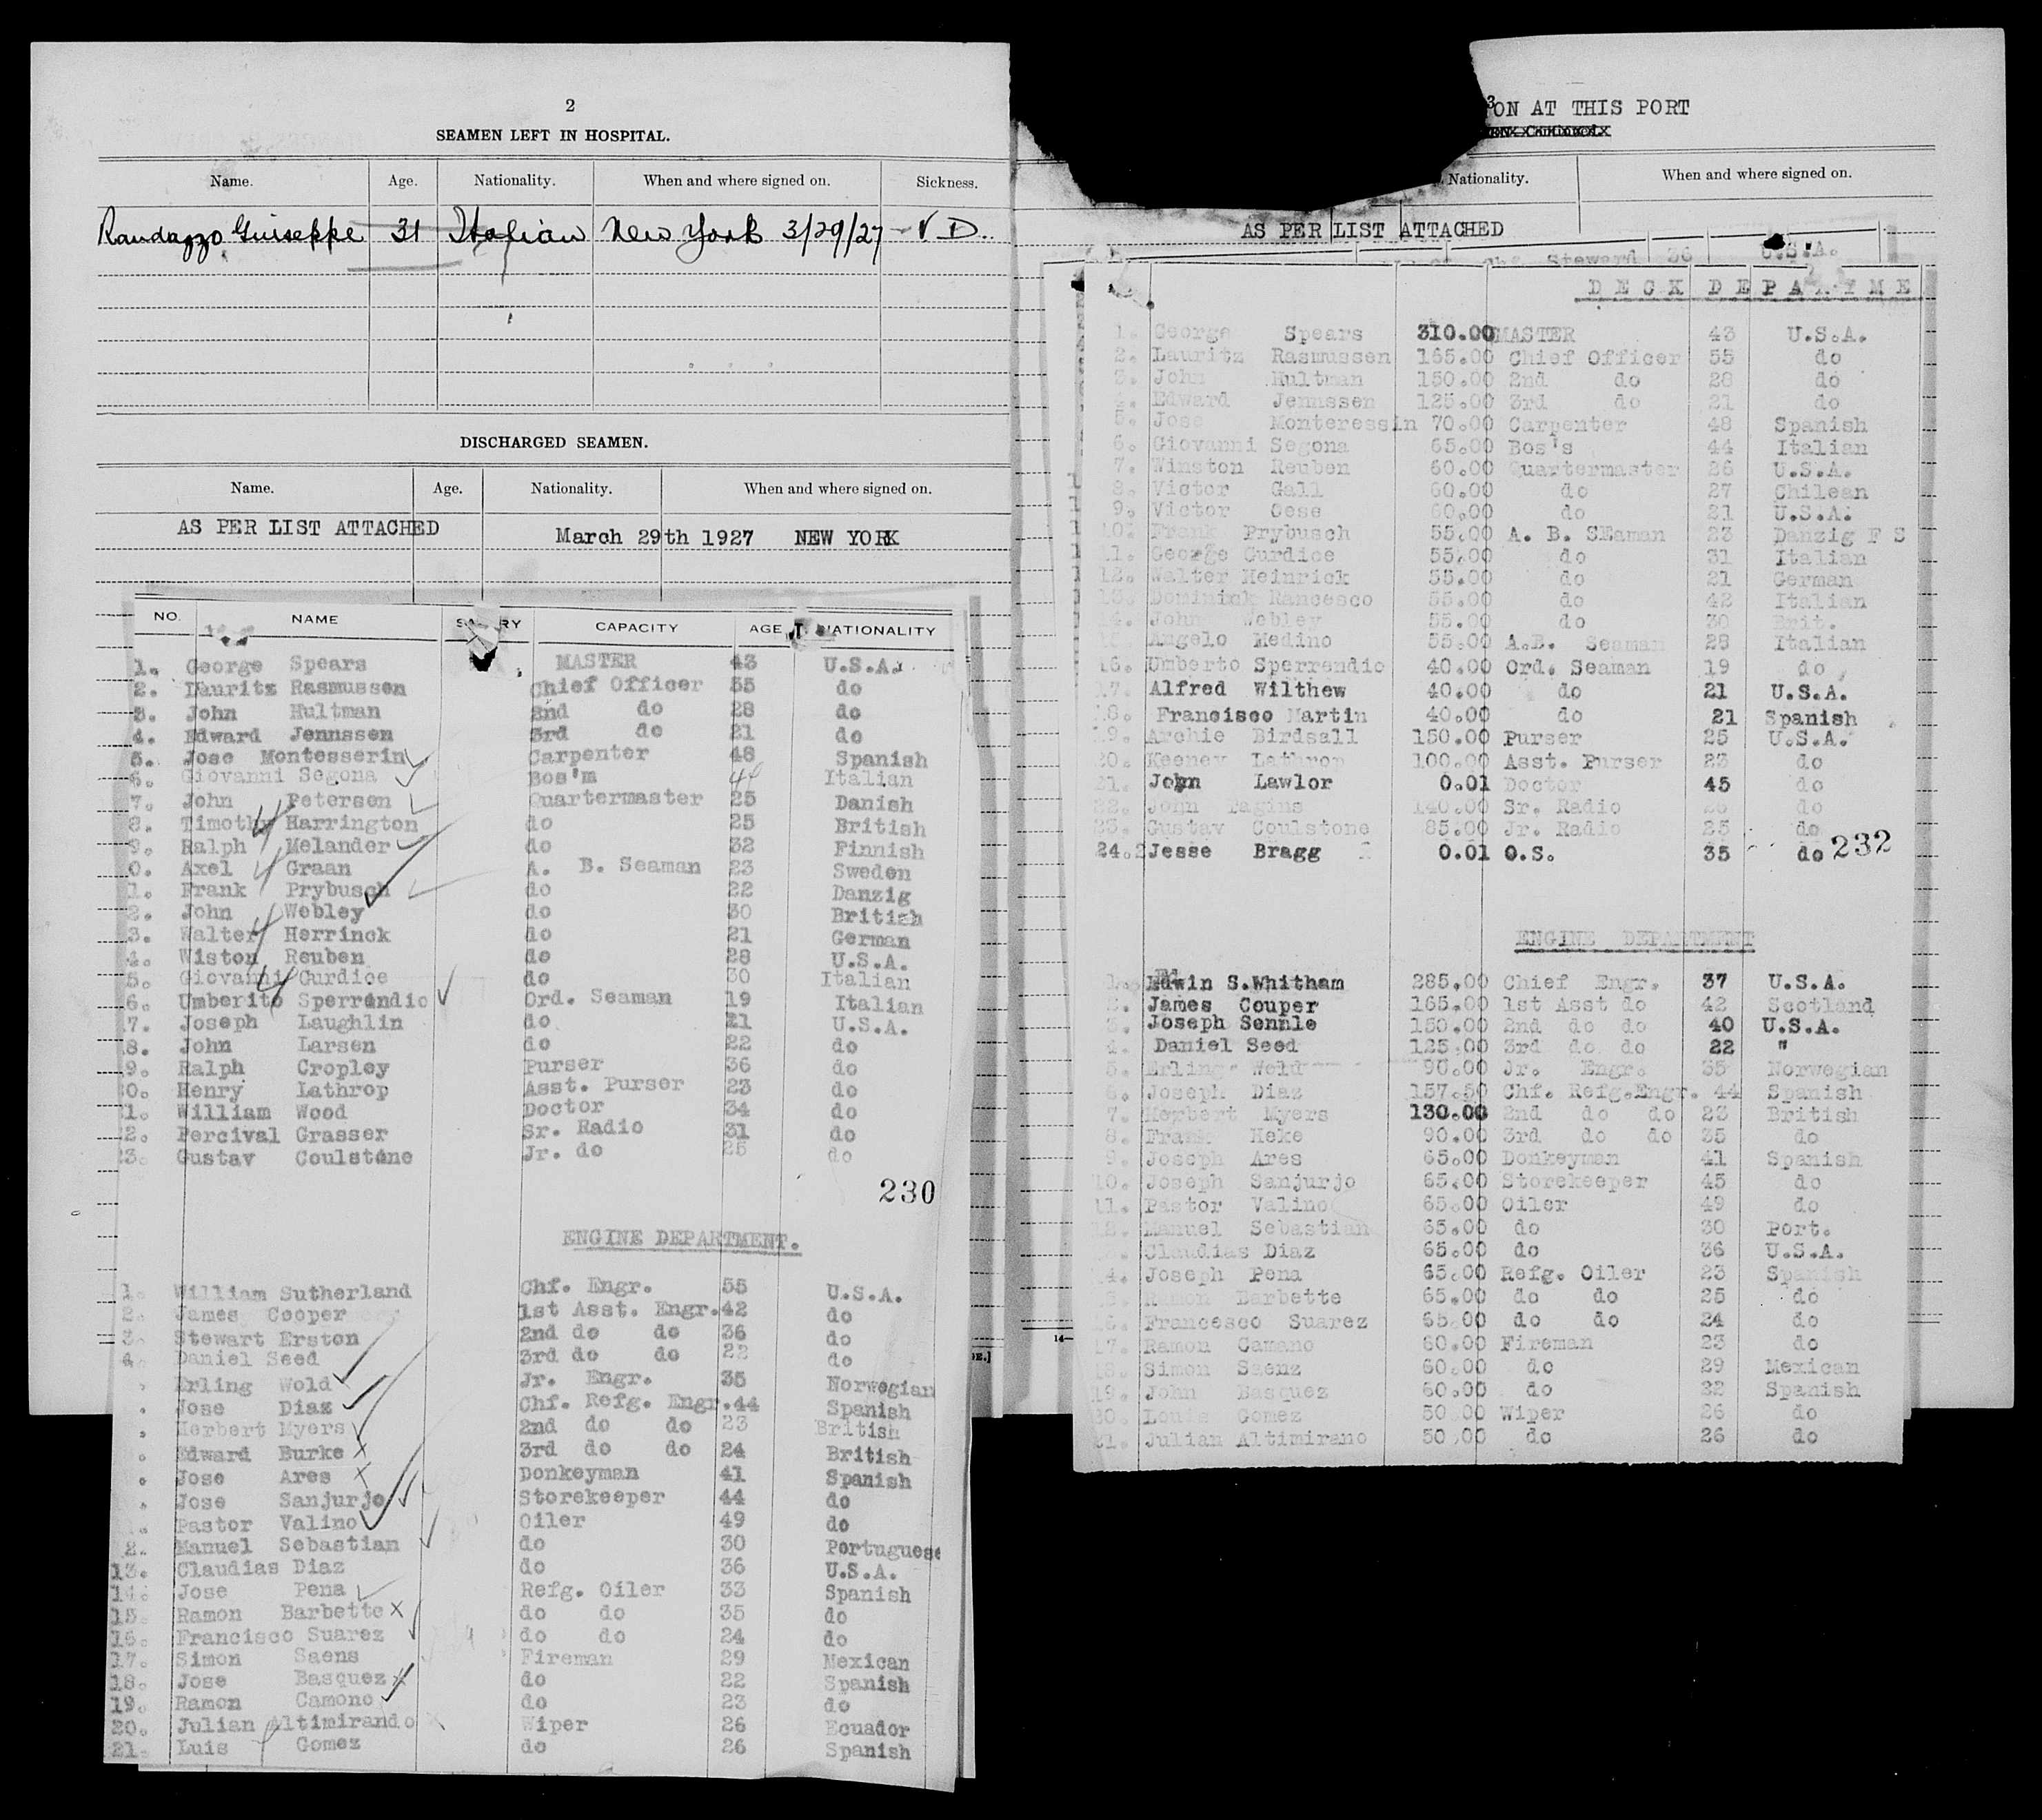 2
SEAMEN LEFT IN HOSPITAL.
Name. Age. Nationality. When and where signed on. Sickness.
Randazzo Guiseppe 31 Italian New York 3/29/27 - V D.
DISCHARGED SEAMEN.
Name. Age. Nationality. When and where signed on.
AS PER LIST ATTACHED March 29th 1927 NEW YORK
NO. NAME CAPACITY AGE NATIONALITY
1. George Spears MASTER 43 U.S.A.
2. Lauritz Rasmussen Chief Officer 55 do
3. John Hultman 2nd do 28 do
4. Edward Jennssen 3rd do 21 do
5. Jose Montesserin Carpenter 48 Spanish
6. Giovanni Segona Bos'm 44 Italian
7. John Petersen Quartermaster 25 Danish
8. Timothy Harrington do 25 British
9. Ralph Melander do 32 Finnish
0. Axel Graan A. B. Seaman 23 Sweden
1. Frank Prybusch do 22 Danzig
2. John Webley do 30 British
3. Walter Herrinck do 21 German
4. Wiston Reuben do 28 U.S.A.
5. Giovanni Curdice do 30 Italian
6. Umberito Sperrandio Ord. Seaman 19 Italian
7. Joseph Laughlin do 21 U.S.A.
8. John Larsen do 22 do
9. Ralph Cropley Purser 36 do
0. Henry Lathrop Asst. Purser 23 do
1. William Wood Doctor 34 do
2. Percival Grasser Sr. Radio 31 do
3. Gustav Coulstone Jr. do 25 do
230
ENGINE DEPARTMENT.
1. William Sutherland Chf. Engr. 55 U.S.A.
2. James Cooper 1st Asst. Engr. 42 do
3. Stewart Erston 2nd do do 36 do
4. Daniel Seed 3rd do do 22 do
. Erling Wold Jr. Engr. 35 Norwegian
. Jose Diaz Chf. Refg. Engr. 44 Spanish
. Herbert Myers 2nd do do 23 British
. Edward Burke 3rd do do 24 British
. Jose Ares Donkeyman 41 Spanish
. Jose Sanjurjo Storekeeper 44 do
. Pastor Valino Oiler 49 do
2. Manuel Sebastian do 30 Portuguese
13. Claudias Diaz do 36 U.S.A.
14. Jose Pena Refg. Oiler 33 Spanish
15. Ramon Barbette do do 35 do
16. Francisco Suarez do do 24 do
17. Simon Saens Fireman 29 Mexican
18. Jose Basquez do 22 Spanish
19. Ramon Camono do 23 do
20. Julian Altimirando Wiper 26 Ecuador
21. Luis Gomez do 26 Spanish
3
ON AT THIS PORT
Nationality. When and where signed on.
AS PER LIST ATTACHED
Steward 36 U.S.A.
DECK DEPA
1. George Spears 310.00 MASTER 43 U.S.A.
2. Lauritz Rasmussen 165.00 Chief Officer 55 do
3. John Hultman 150.00 2nd do 28 do
4. Edward Jennssen 125.00 3rd do 21 do
5. Jose Monteressin 70.00 Carpenter 48 Spanish
6. Giovanni Segona 65.00 Bos's 44 Italian
7. Winston Reuben 60.00 Quartermaster 26 U.S.A.
8. Victor Gall 60.00 do 27 Chilean
9. Victor Oese 60.00 do 21 U.S.A.
10. Frank Prybusch 55.00 A. B. SEaman 23 Danzig F S
11. George Curdice 55.00 do 31 Italian
12. Walter Heinrick 55.00 do 21 German
13. Dominink Rancesco 55.00 do 42 Italian
14. John Webley 55.00 do 30 Brit.
15. Angelo Medino 55.00 A.B. Seaman 28 Italian
16. Umberto Sperrendio 40.00 Ord. Seaman 19 do
17. Alfred Wilthew 40.00 do 21 U.S.A.
18. Francisco Martin 40.00 do 21 Spanish
19. Archie Birdsall 150.00 Purser 25 U.S.A.
20. Keeney Lathrop 100.00 Asst. Purser 23 do
21. John Lawlor 0.01 Doctor 45 do
22. John Tagins 140.00 Sr. Radio 26 do
23. Gustav Coulstone 85.00 Jr. Radio 25 do
24. Jesse Bragg 0.01 O.S. 35 do
232
ENGINE DEPARTMENT
1. Edwin S.Whitham 285.00 Chief Engr. 37 U.S.A.
2. James Couper 165.00 1st Asst do 42 Scotland
3. Joseph Sennle 150.00 2nd do do 40 U.S.A.
4. Daniel Seed 125.00 3rd do do 22 "
5. Erling Wold 90.00 Jr. Engr. 35 Norwegian
6. Joseph Diaz 157.50 Chf. Refg.Engr. 44 Spanish
7. Herbert Myers 130.00 2nd do do 23 British
8. Frank Heke 90.00 3rd do do 35 do
9. Joseph Ares 65.00 Donkeyman 41 Spanish
10. Joseph Sanjurjo 65.00 Storekeeper 45 do
11. Pastor Valino 65.00 Oiler 49 do
12. Manuel Sebastian 65.00 do 30 Port.
Claudias Diaz 65.00 do 36 U.S.A.
4. Joseph Pena 65.00 Refg. Oiler 23 Spanish
15. Ramon Barbette 65.00 do do 25 do
16. Francesco Suarez 65.00 do do 24 do
17. Ramon Camano 60.00 Fireman 23 do
18. Simon Saenz 60.00 do 29 Mexican
19. John Basquez 60.00 do 22 Spanish
20. Louis Gomez 50.00 Wiper 26 do
21. Julian Altimirano 50.00 do 26 do